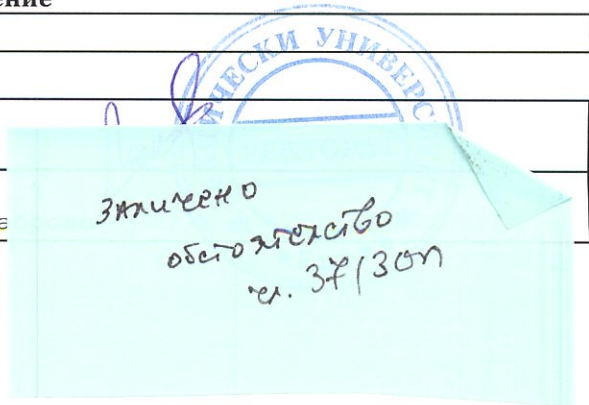 ение
ИЧЕСКИ УНИВЕРС
заличено
обстоятелство
чл. 37/ЗОП